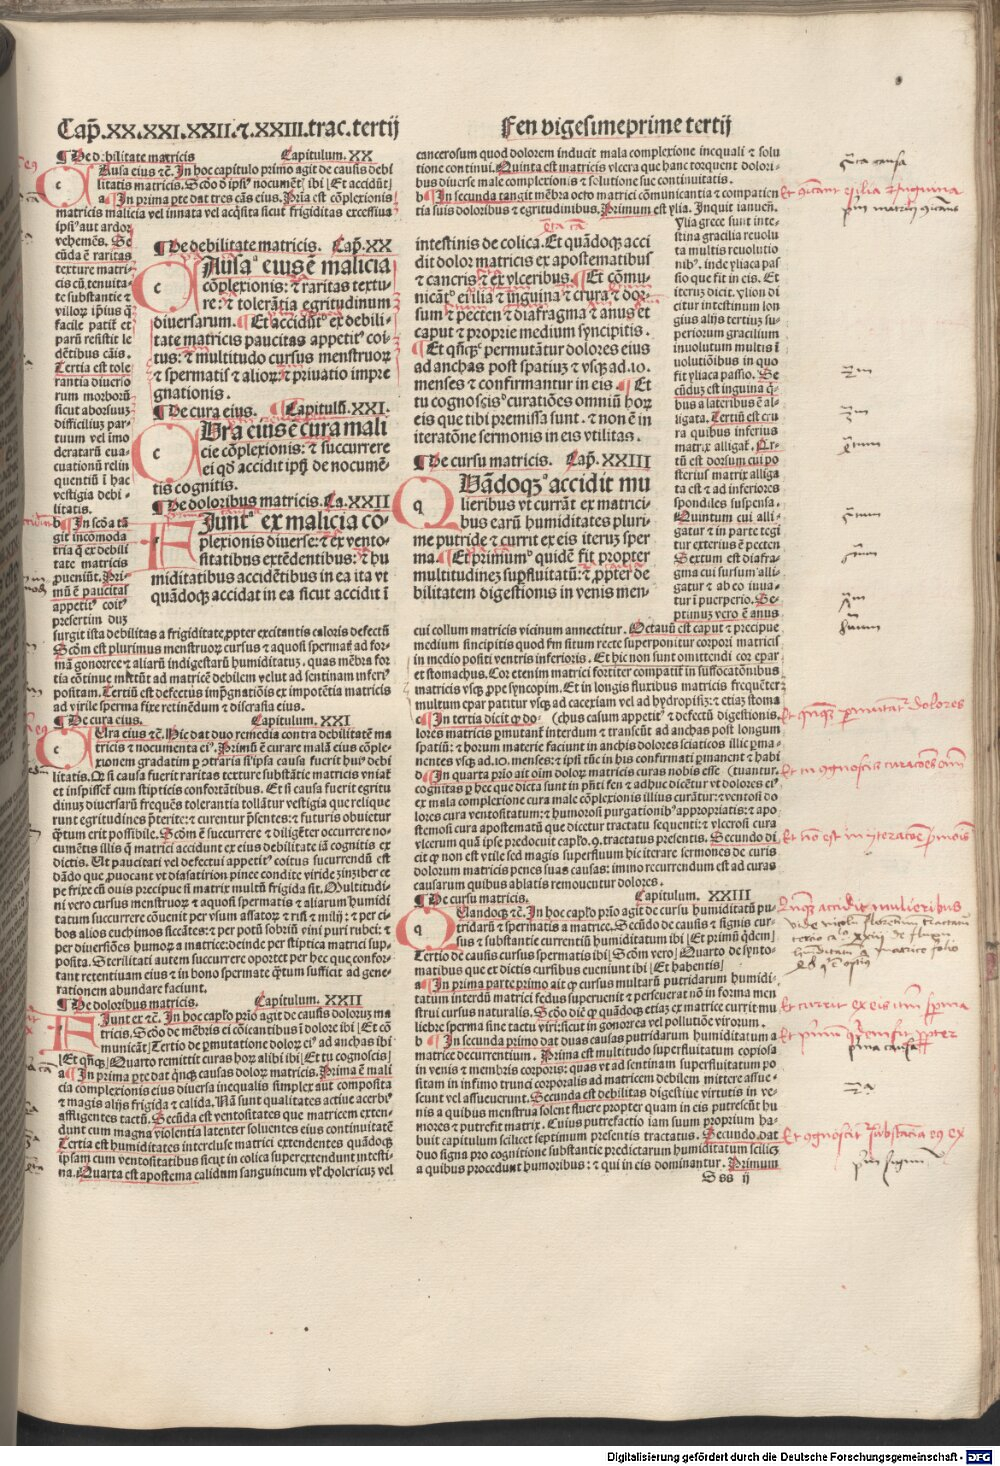 Cap̄.XX.XXI.XXII.⁊.XXIII.trac.tertij
Fen vigesimeprime tertij
¶ De debilitate matricis Capitulum. XX
Ausa eius ⁊c̄. In hoc capitulo primo agit de causis debi
litatis matricis. Scd̄o d̄ ip̄siꝰ nocumēt̄ ibi ⁊ Et accidūt̄
a ¶ In prima pte dat tres cās eius. Pria est cōplexionis
matricis malicia vel innata vel acq̄sita sicut frigiditas excessiua
ipsiꝰ aut ardor
vehemēs. Se
cūda ē raritas
texture matri⸗
cis cū tenuita⸗
te substantie ⁊
villoꝝ ip̄ius q̄
facile patit̄ et
parū resistit le
dētibus cāis.
Tertia est tole
rantia diuerso
rum morboꝝ
sicut aborsuuꝫ
difficilius par⸗
tuum vel imo
deratarū eua⸗
cuationū relin
quentiū ī hac
vestigia debi⸗
litatis.
b ¶ In scd̄a tā
git incomoda
tria q̄ ex debili
tate matricis
proueniūt. Pri⸗
mū ē paucitas
appetitꝰ coitꝰ
presertim dūꝫ
¶ De debilitate matricis. Cap̄.XX
CAusaꝰ eius ē malicia
cōplexionis: ⁊ raritas textu⸗
re: ⁊ tolerātia egritudinum
diuersarum. ¶ Et accidūtꝰ ex debili⸗
tate matricis paucitas appetitꝰ coi⸗
tus: ⁊ multitudo cursus menstruoꝝ
⁊ spermatis ⁊ alioꝝ: ⁊ priuatio impre
gnationis.
¶ De cura eius. ¶ Capitulū.XXI.
CUra eius ē cura mali
cie cōplexionis: ⁊ succurrere
ei qđ accidit ipsi de nocumē⸗
tis cognitis.
¶ De doloribus matricis. Ca.XXII
FIuntꝰ ex malicia cō⸗
plexionis diuerse: ⁊ ex vento⸗
sitatibus extēdentibus: ⁊ hu
miditatibus accidētibus in ea ita vt
quādoqꝫ accidat in ea sicut accidit ī
surgit ista debilitas a frigiditate ꝓpter excitantis caloris defectū
Scd̄m est plurimus menstruoꝝ cursus ⁊ aquosi spermatꝭ ad for⸗
mā gonorree ⁊ aliarū indigestarū humiditatuꝫ. quas mēbra for
tia cōtinue mittūt ad matricē debilem velut ad sentinam inferiꝰ
positam. Tertiū est defectus imp̄gnatiōis ex impotētia matricis
ad virile sperma fixe retinēdum ⁊ discrasia eius.
¶ De cura eius. Capitulum. XXI
CUra eius ⁊c̄. Hic dat duo remedia contra debilitatē ma
tricis ⁊ nocumenta eiꝰ. Primū ē curare malā eius cōple⸗
xionem gradatim per ꝯtraria si ip̄sa causa fuerit huiꝰ debi
litatis. Qꝫ si causa fuerit raritas texture substātie matricis vniat̄
et inspisset̄ cum stipticis confortātibus. Et si causa fuerit egritu
dinuꝫ diuersarū frequēs tolerantia tollātur vestigia que relique
runt egritudines p̄terite: ⁊ curentur p̄sentes: ⁊ futuris obuietur
q̄ꝫtum erit possibile. Scd̄m ē succurrere ⁊ diligēter occurrere no⸗
cumētis illis q̄ matrici accidunt ex eius debilitate iā cognitis ex
dictis. Ut paucitati vel defectui appetitꝰ coitus succurrendū est
dādo que ꝓuocant vt diasatirion pinee condite viride zinziber ce
pe frixe cū ouis precipue si matrix multū frigida sit. Multitudi
ni vero cursus menstruoꝝ ⁊ aquosi spermatis ⁊ aliarum humidi
tatum succurrere cōuenit per vsum assatoꝝ ⁊ risi ⁊ milij: ⁊ per ci⸗
bos alios euchimos siccātes: ⁊ per potū sobriū vini puri rubei: ⁊
per diuersiōes humoꝝ a matrice: deinde per stiptica matrici sup⸗
posita. Sterilitati autem succurrere oportet per hec que confor⸗
tant retentiuam eius ⁊ in bono spermate q̄ꝫtum sufficit ad gene⸗
rationem abundare faciunt.
¶ De doloribus matricis. Capitulum. XXII
FIunt ex ⁊c̄. In hoc cap̄lo prio agit de causis doloruꝫ ma
tricis. Scd̄o de mēbris ei cōicantibus ī dolore ibi ⁊ Et cō
municāt̄ ⁊ Tertio de permutatione doloꝝ eiꝰ ad anchas ibi
⁊ Et qn̄qꝫ ⁊ Quarto remittit curas hoꝝ alibi ibi ⁊ Et tu cognoscis
a ¶ In prima pte dat qn̄qꝫ causas doloꝝ matricis. Prima ē mali
cia complexionis eius diuersa inequalis simplex aut composita
⁊ magis alijs frigida ⁊ calida. Nā sunt qualitates actiue acerbiꝰ
affligentes tactū. Secūda est ventositates que matricem exten⸗
dunt cum magna violentia latenter soluentes eius continuitatē
Tertia est humiditates intercluse matrici extendentes quādoqꝫ
ipsam cum ventositatibus sicut in colica superextendunt intesti⸗
na. Quarta est apostema calidum sanguineum vl̄ cholericuꝫ vel
cancerosum quod dolorem inducit mala complexione inequali ⁊ solu
tione continui. Quinta est matricis vlcera que hanc torquent dolori⸗
bus diuerse male complexionis ⁊ solutione sue continuitatis.
b ¶ In secunda tangit mēbra octo matrici cōmunicantia ⁊ compatien
tia suis doloribus ⁊ egritudinibus. Primum est ylia. Inquit ianuen̄.
Ylia grece sunt inte⸗
stina gracilia reuolu
ta multis reuolutio
nibꝰ. inde yliaca pas
sio que fit in eis. Et
iteruꝫ dicit. ylion di
citur intestinum lon
gius alijs tertiuꝫ su⸗
periorum gracilium
inuolutum multis ī
uolutiōibus in quo
fit yliaca passio. Se
cūduꝫ est inguina q̄⸗
bus a lateribus ē al⸗
ligata. Tertiū est cru
ra quibus inferius
matrix alligat̄. Qr⸗
tū est dorsum cui po
sterius matrix alliga
ta est ⁊ ad inferiores
spondiles suspensa.
Quintum cui alli⸗
gatur ⁊ in parte tegi
tur exterius ē pecten
Sextum est diafrag⸗
ma cui sursuꝫ alli⸗
gatur ⁊ ab eo iuua⸗
tur ī puerperio. Se⸗
ptimuꝫ vero ē anus
intestinis de colica. Et quādoqꝫ acci
dit dolor matricis ex apostematibus
⁊ cancris ⁊ ex vlceribus. ¶ Et cōmu⸗
nicātꝰ ei ilia ⁊ inguina ⁊ crura ⁊ dor⸗
sum ⁊ pecten ⁊ diafragma ⁊ anus et
caput ⁊ proprie medium syncipitis.
¶ Et qn̄qꝫ permutātur dolores eius
ad anchas post spatiuꝫ ⁊ vsqꝫ ad.10.
menses ⁊ confirmantur in eis. ¶ Et
tu cognoscisꝰ curatiōes omniū hoꝝ
eis que tibi premissa sunt. ⁊ non ē in
iteratōne sermonis in eis vtilitas.
¶ De cursu matricis. Cap̄. XXIII
QUādoqꝫꝰ accidit mu
lieribus vt currāt ex matrici⸗
bus earū humiditates pluri⸗
me putride ⁊ currit ex eis iteruꝫ sper
ma. ¶ Et primumꝰ quidē fit propter
multitudineꝫ suꝑfluitatū: ⁊ ꝓpter de
bilitatem digestionis in venis men⸗
cui collum matricis vicinum annectitur. Octauū est caput ⁊ precipue
medium sincipitis quod ꝑm situm recte superponitur corpori matricis
in medio positi ventris inferioris. Et hic non sunt omittendi cor epar
et stomachus. Cor etenim matrici fortiter compatit̄ in suffocatōnibus
matricis vsqꝫ ꝓpe syncopim. Et in longis fluxibus matricis frequēter
multum epar patitur vsqꝫ ad cacexiam vel ad hydropisiꝫ: ⁊ etiaꝫ stoma
c ¶ In tertia dicit qꝫ do⸗ (chus casum appetitꝰ ⁊ defectū digestionis.
lores matricis permutant̄ interdum ⁊ transeūt ad anchas post longum
spatiū: ⁊ horum materie faciunt in anchis dolores sciaticos illic p̄ma⸗
nentes vsqꝫ ad.10. menses: ⁊ ipsi tūc in his confirmati ꝑmanent ⁊ habi
d ¶ In quarta prio ait oīm doloꝝ matricis curas nobis esse (tuantur.
cognitas ꝑ hec que dicta sunt in p̄nti fen ⁊ adhuc dicētur vt dolores eiꝰ
ex mala complexione cura male cōplexionis illius curātur: ⁊ ventosi do
lores cura ventositatum: ⁊ humorosi purgationibꝰ appropriatis: ⁊ apo
stemosi cura apostematū que dicetur tractatu sequenti: ⁊ vlcerosi cura
vlcerum quā ipse predocuit cap̄lo.9. tractatus presentis. Secundo di
cit qꝫ non est vtile sed magis superfluum hic iterare sermones de curis
dolorum matricis penes suas causas: immo recurrendum est ad curas
causarum quibus ablatis remouentur dolores.
¶ De cursu matricis. Capitulum. XXIII
QUandoqꝫ ⁊c̄. In hoc cap̄lo prio agit de cursu humiditatū pu⸗
tridarū ⁊ spermatis a matrice. Secūdo de causis ⁊ signis cur⸗
sus ⁊ substantie currentiū humiditatum ibi ⁊ Et primū q̄dem ⁊
Tertio de causis cursus spermatis ibi ⁊ Scd̄m vero ⁊ Quarto de synto⸗
matibus que ex dictis cursibus eueniunt ibi ⁊ Et habentis ⁊
a ¶ In prima parte primo ait qꝫ cursus multarū putridarum humidi⸗
tatum interdū matrici fedus superuenit ⁊ perseuerat nō in forma men
strui cursus naturalis. Scd̄o dic̄ qꝫ quādoqꝫ etiaꝫ ex matrice currit mu
liebre sperma sine tactu viri: sicut in gonorea vel pollutiōe virorum.
b ¶ In secunda primo dat duas causas putridarum humiditatum a
matrice decurrentium. Prima est multitudo superfluitatum copiosa
in venis ⁊ membris corporis: quas vt ad sentinam superfluitatum po
sitam in infimo trunci corporalis ad matricem debilem mittere assue⸗
scunt vel assueuerunt. Secunda est debilitas digestiue virtutis in ve⸗
nis a quibus menstrua solent fluere propter quam in eis putrescūt hu
mores ⁊ putrefit matrix. Cuius putrefactio iam suum proprium ha⸗
buit capitulum scilicet septimum presentis tractatus. Secundo dat
duo signa pro cognitione substantie predictarum humiditatum scilicꝫ
a quibus procedunt humoribus: ⁊ qui in eis dominantur. Primum
Sss ij
Et ꝯicant ei ilia ⁊ inguina
Et qn̄qꝫ ꝑmutant̄ dolores
Et tu ꝯgnoscis curatōes oīm
Et nō est in yteratōe sermonis
Qn̄qꝫ accidit mulieribus
Et currit ex eis
Et primū q̄dē fit ꝓpter
prima causa
Et ꝯgnoscit̄ substācia eiꝰ ex
primū signū
Digitalisierung gefördert durch die Deutsche Forschungsgemeinschaft - DFG